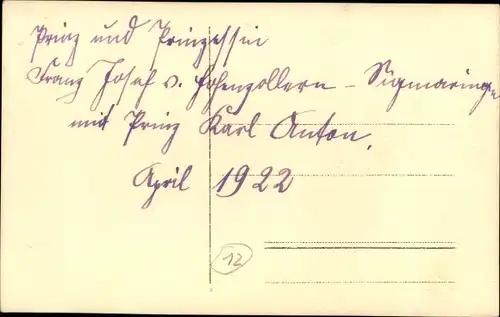 Prinz und Prinzessin
Franz Josef v. Hohenzollern – Sigmaringen
mit Prinz Karl Anton.
April 1922
12